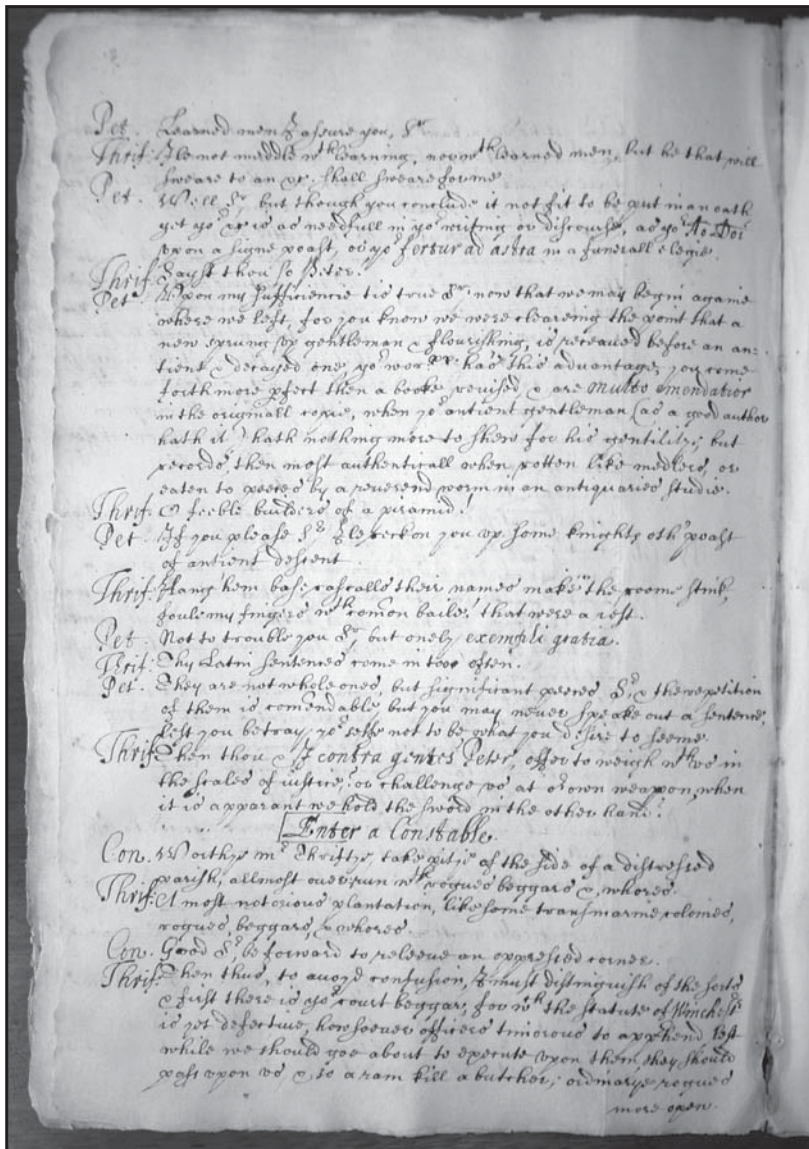 Pet. Learned men I assure you, Sr
Thrif: Ile not meddle wth learning, nor wth learned men, but he that will
sweare to an &c. shall sweare for me
Pet. Well Sr, but though you conclude it not fit to be put in an oath
yet yor &c is as needfull in yor writing or discourse, as yor Ao Doi
vpon a signe poast, or yor fertur ad astra in a funerall elegie.
Thrif: Sayst thou so Peter.
Pet. Vpon my sufficiencie tis true Sr. now that we may begin againe
where we left, for you know we were cleareing the point that a
new sprung vp gentleman & flourishing, is receaued before an an=
tient & decayed one, yor worpp. has this advantage, you come
forth more pfect then a booke revised, & are multo emendatior
in the originall copie, when yor antient gentleman (as a good author
hath it) hath nothing more to shew for his gentilitye but
records, then most authenticall when rotten like medlers, or
eaten to peeces by a reuerend worm in an antiquaries studie.
Thrif: O feeble builders of a piramid!
Pet. If you please Sr Ile reckon you vp some knights oth poast
of antient descent
Thrif: Hang 'hem base rascalls their names make the roome stink,
foule my fingers wth comon baile, that were a iest.
Pet. Not to trouble you Sr, but onely exempli gratia.
Thrif: Thy Latin sentences come in too often.
Pet. They are not whole ones, but significant peeces Sr, & the repetition
of them is comendable but you may never speake out a sentence,
lest you betray yor selfe not to be what you desire to seeme.
Thrif: Then thou & I contra gentes Peter, offer to weigh wth vs in
the scales of iustice, or challenge vs at or own weapon, when
it is apparant we hold the sword in the other hand.
Enter a Constable.
Con. Worthye mr Thriftye, take pitye of the side of a distressed
parish, allmost ouerrun wth rogues beggars &, whores.
Thrif: A most notorious plantation, like some transmarine colonies,
rogues, beggars, & whores.
Con. Good Sr, be forward to releeue an oppressed corner.
Thrif: Then thus, to auoyd confusion, I must distinguish of the sorts
& first there is yor court beggar, for wch the statute of Winchestr
is yet defective, howsoever officers timorous to apphend lest
while we should goe about to execute vpon them, they should
pass vpon vs & so a ram kill a butcher; ordinarye rogues
more open.